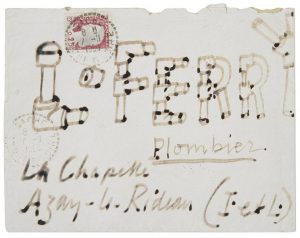 L. FERRY
Plombier
La Chapelle
Azay-le-Rideau (I-et-L)